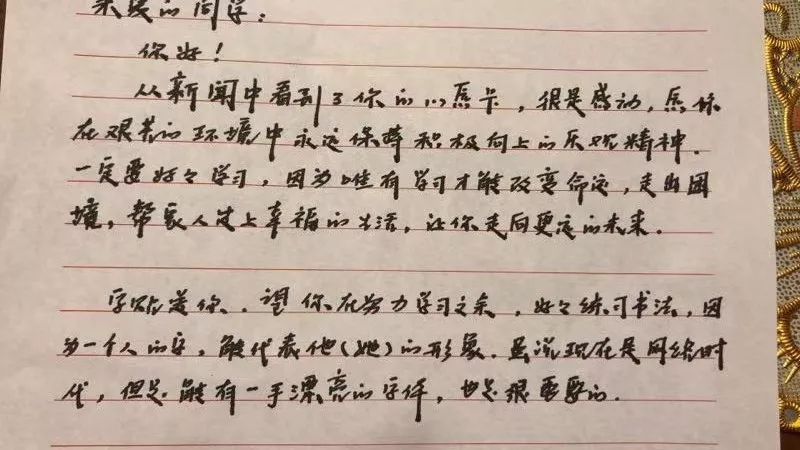 亲爱的同学:
你好!
从新闻中看到了你的心愿卡,很是感动,愿你
在艰苦的环境中永远保持积极向上的乐观精神.
一定要好々学习,因为唯有学习才能改变命运,走出困
境,帮家人过上幸福的生活,让你走向更远的未来.
字贴送你.望你在努力学习之余,好々练习书法,因
为一个人的字,能代表他(她)的形象.虽说现在是网络时
代,但是能有一手漂亮的字体,也是很重要的.